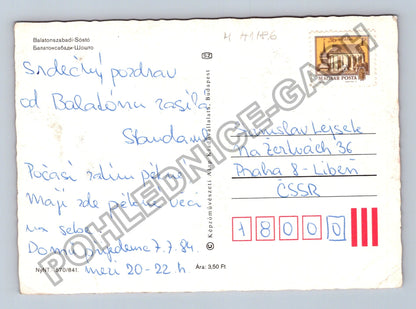 Balatonszabadi-Sóstó
Балатонсабади-Шошто
Srdečný pozdrav
od Balatonu zasílá
Standa
Počasí zatím pěkné
Mají zde pěkné věci
na sebe
Domů přijedeme 7.7.84.
mezi 20-22.h
NyNT. 570/841.
Ára: 3,50 Ft
Képzőművészeti Alap Kiadóvállalata, Budapest
MAGYAR POSTA
Stanislav Lejsek
Na Žertvách 36
Praha 8 - Libeň
ČSSR
18000
POHLEDNICE-GASH